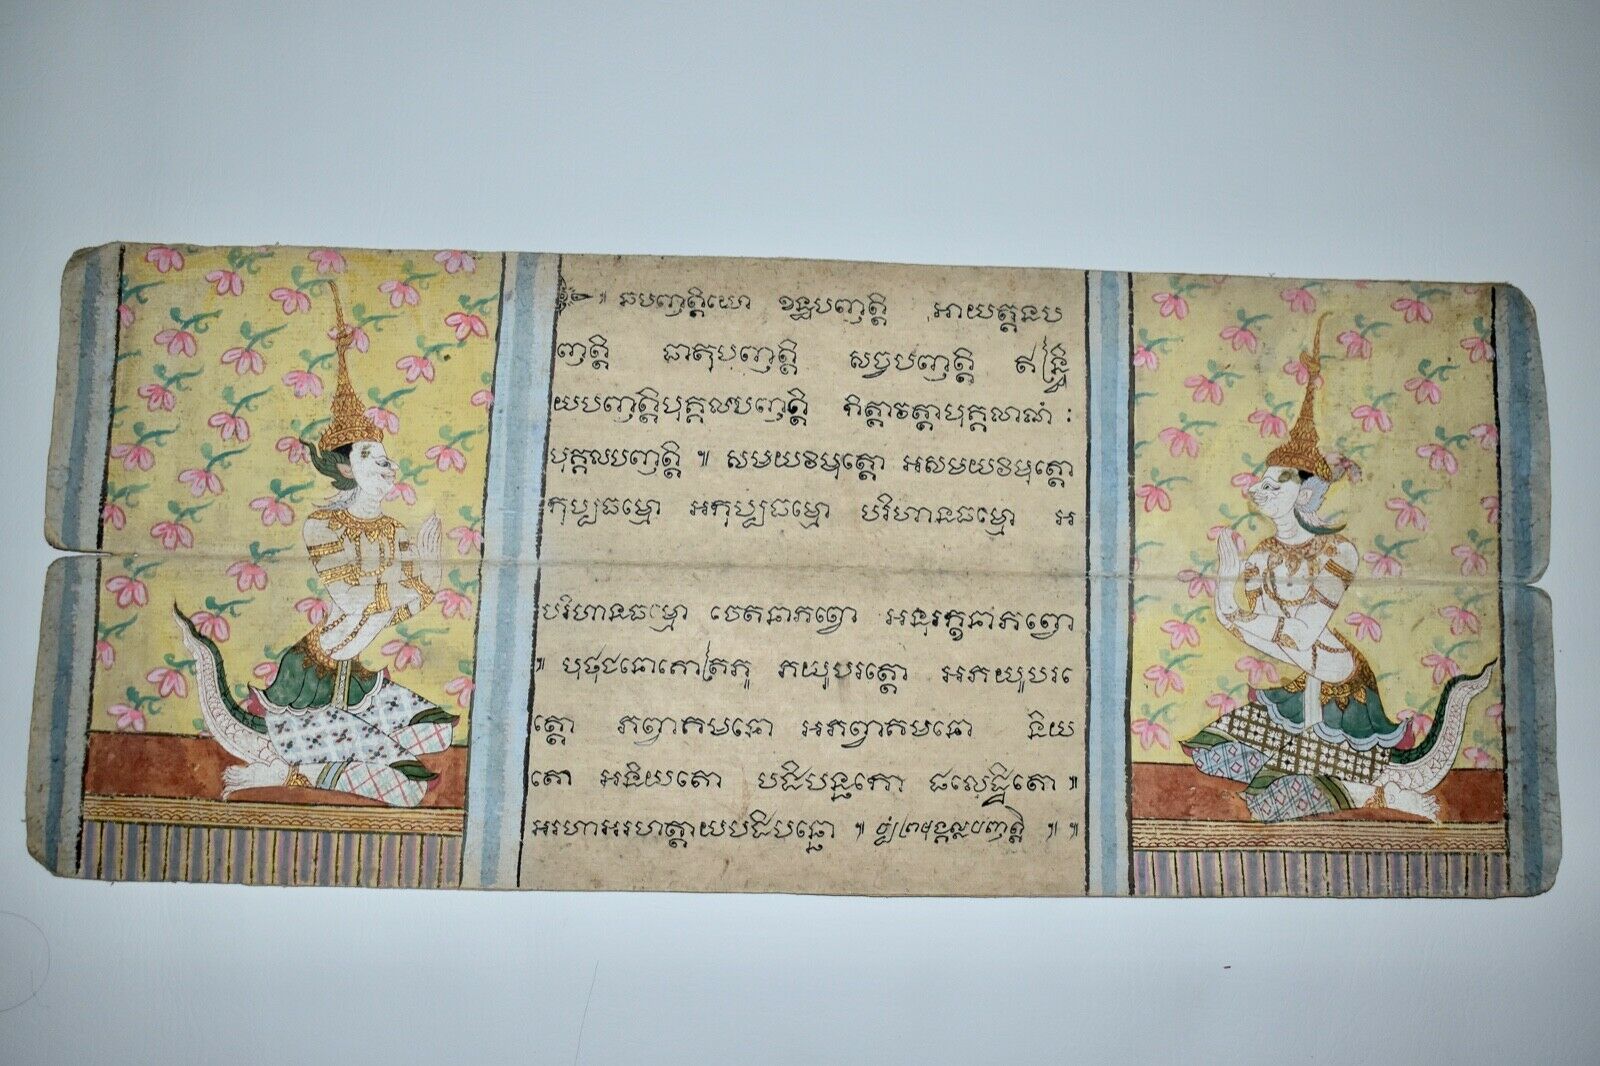 ៕ ឆបញ្ញត្តិយោ ខន្ធបញ្ញត្តិ អាយត្តនប
ញ្ញត្តិ ធាតុបញ្ញត្តិ សច្ចបញ្ញត្តិ ឥន្ទ្រិ
យបញ្ញត្តិបុគ្គលបញ្ញត្តិ កិត្តាវត្តាបុគ្គលាណំ ៈ
បុគ្គលបញ្ញត្តិ ៕ សមយវិមុត្តោ អសមយវិមុត្តោ
កុប្បធម្មោ អកុប្បធម្មោ បរិហានធម្មោ អ
បរិហានធម្មោ ចេតនាភព្វោ អនុរក្ខនាភព្វោ
៕ បុថុជ្ជនោគោត្រភូ ភយូបរត្តោ អភយូបរ
ត្តោ ភព្វាគមនោ អភព្វាគមនោ និយ
តោ អនិយតោ បដិបន្នកោ ផលេដ្ឋិតោ ៕
អរហាអរហត្តាយបដិបន្នោ ៕